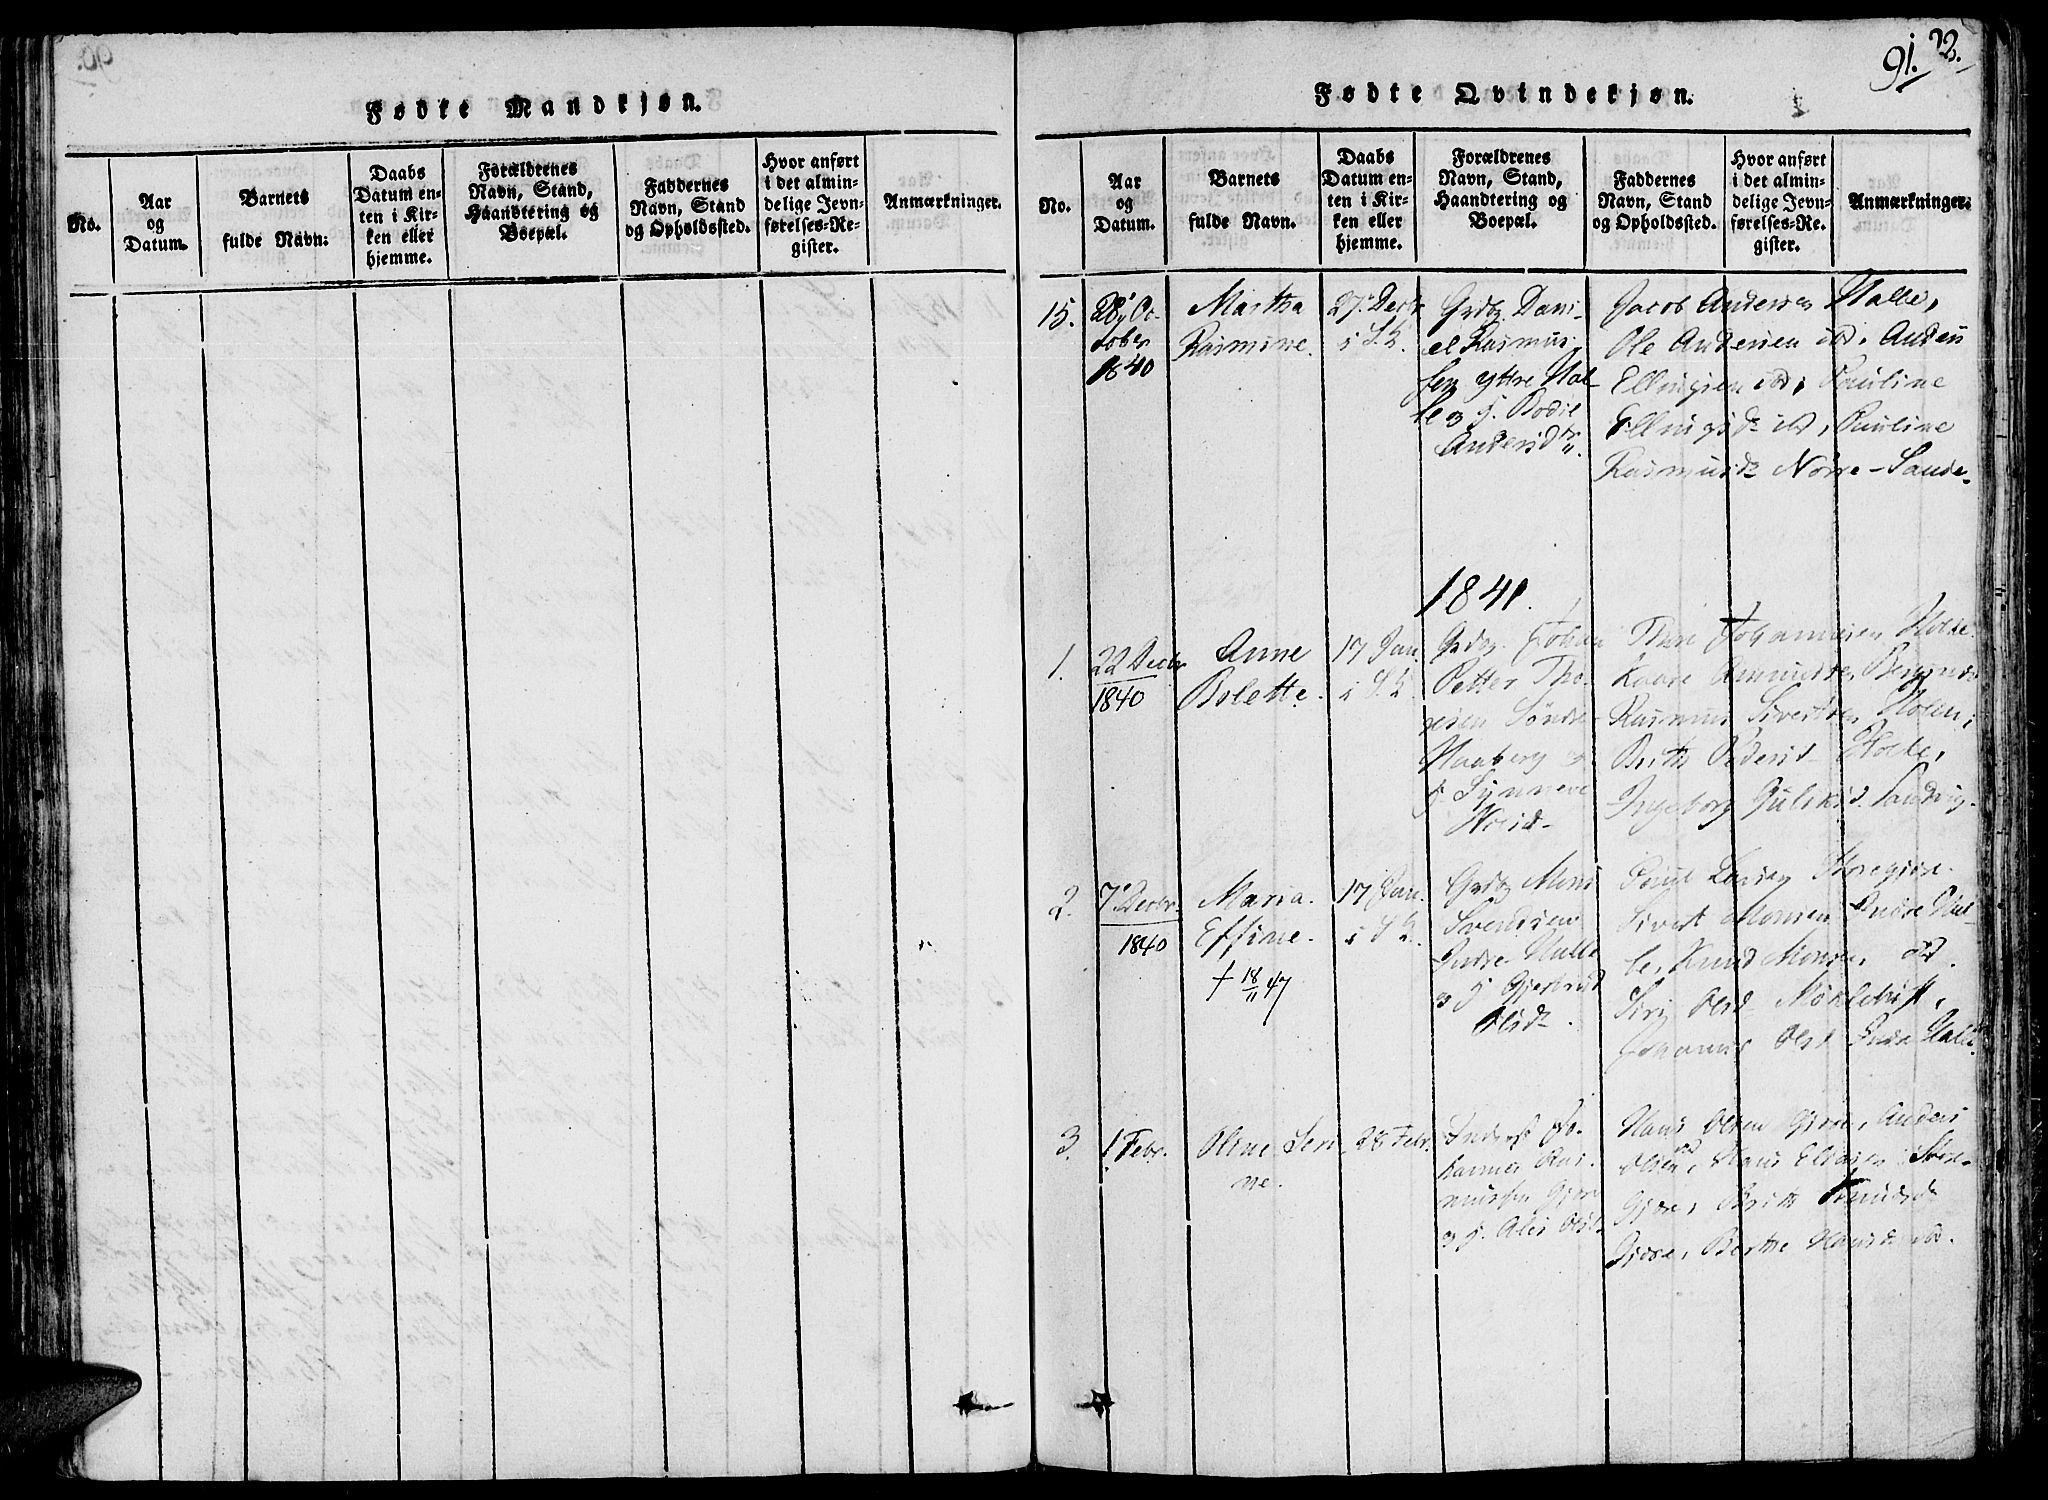 90.
Fødte Mandkjøn.
No.
Aar
og
Datum.
Barnets
fulde Navn.
Daabs
Datum en-
ten i Kir-
ken eller
hjemme.
Forældrenes
Navn, Stand,
Haandtering og
Boepæl.
Faddernes
Navn, Stand
og Opholdssted.
Hvor anført
i det almin-
delige Jevn-
førelses-Re-
gister.
Anmærkninger.
91. 
Fødte Qvindekjøn.
No.
Aar
og
Datum.
Barnets
fulde Navn.
Daabs
Datum en-
ten i Kir-
ken eller
hjemme.
Forældrenes
Navn, Stand,
Haandtering og
Boepæl.
Faddernes
Navn, Stand
og Opholdssted.
Hvor anført
i det almin-
delige Jevn-
førelses-Re-
gister.
Anmærkninger.
15.
28 Oc-
tober
1840
Martha
Rasmine.
27. Decbr
i S.K.
Grdbr. Dani-
el Rasmus-
sen yttre Hal-
le og H. Bodil
Andersdtr.
Jacob Andersen Halle,
Ole Andersen ibd, Anders
Ellingsen ibd, Pauline
Ellingsd. ibd, Pauline
Rasmusd. Nørre-Sande.
1841.
1.
22 Decbr
1840
Anne
Bolette.
17 Jan.
i S.K.
Grdbr. Johan
Petter Tho-
resen Søndre
Haaberg og
H. Synneve
Thore Johannesen
Kaare Amundsen
Rasmus Sivertsen Holen,
Brithe Pedersd. Holle,
Ingeborg Sandvig.
2.
7 Decbr.
1840
Maria
Effine.
† 18/11 47
17 Jan.
i S.K.
Grdbr Mons
Svendsen
Indre Halle
og H. Gjertrud
Olsdr.
Poul Larsen
Sivert Monsen Indre Hal-
le, Knud Monsen ibd.
Siri Olsd. Myklebust,
Johanne Olsd Indre Halle.
3.
1 Febr.
Oline Seri-
ne.
28 Febr.
Inderst Jo-
hannes Ras-
mussen Gjøre
og H. Ales Olsdr
Hans Olsen Gjøre, Anders
Olsen ibd, Hans Eliasen Store-
Gjøre, Brithe Knudsdr
Gjøre, Berthe Hansdr ibd.